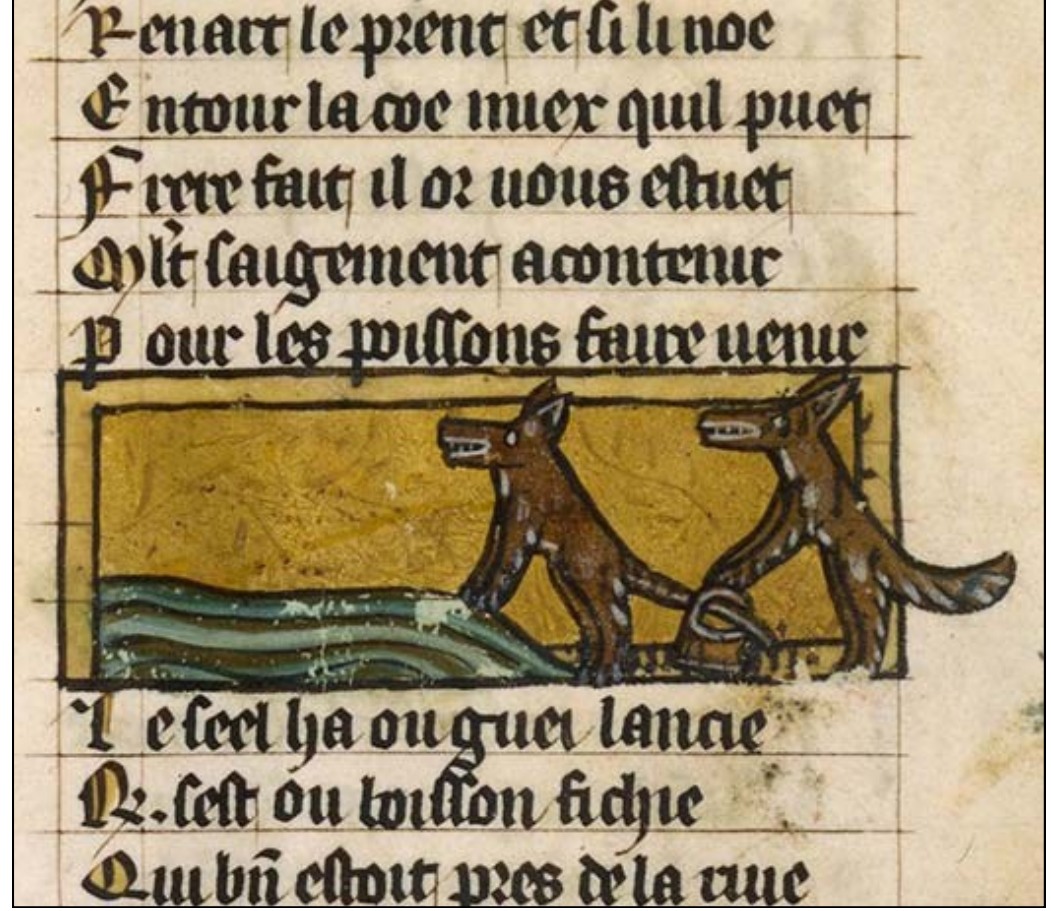 Renart le prent et si li noe
Entour la coe miex quil puet
Frere fait il or uous estuet
Ml't saigement acontenir
Pour les poissons faire uenir
Le seel ha ou guei lancie
R. sest ou boisson fichie
Qui bn̄ estoit pres de la riue